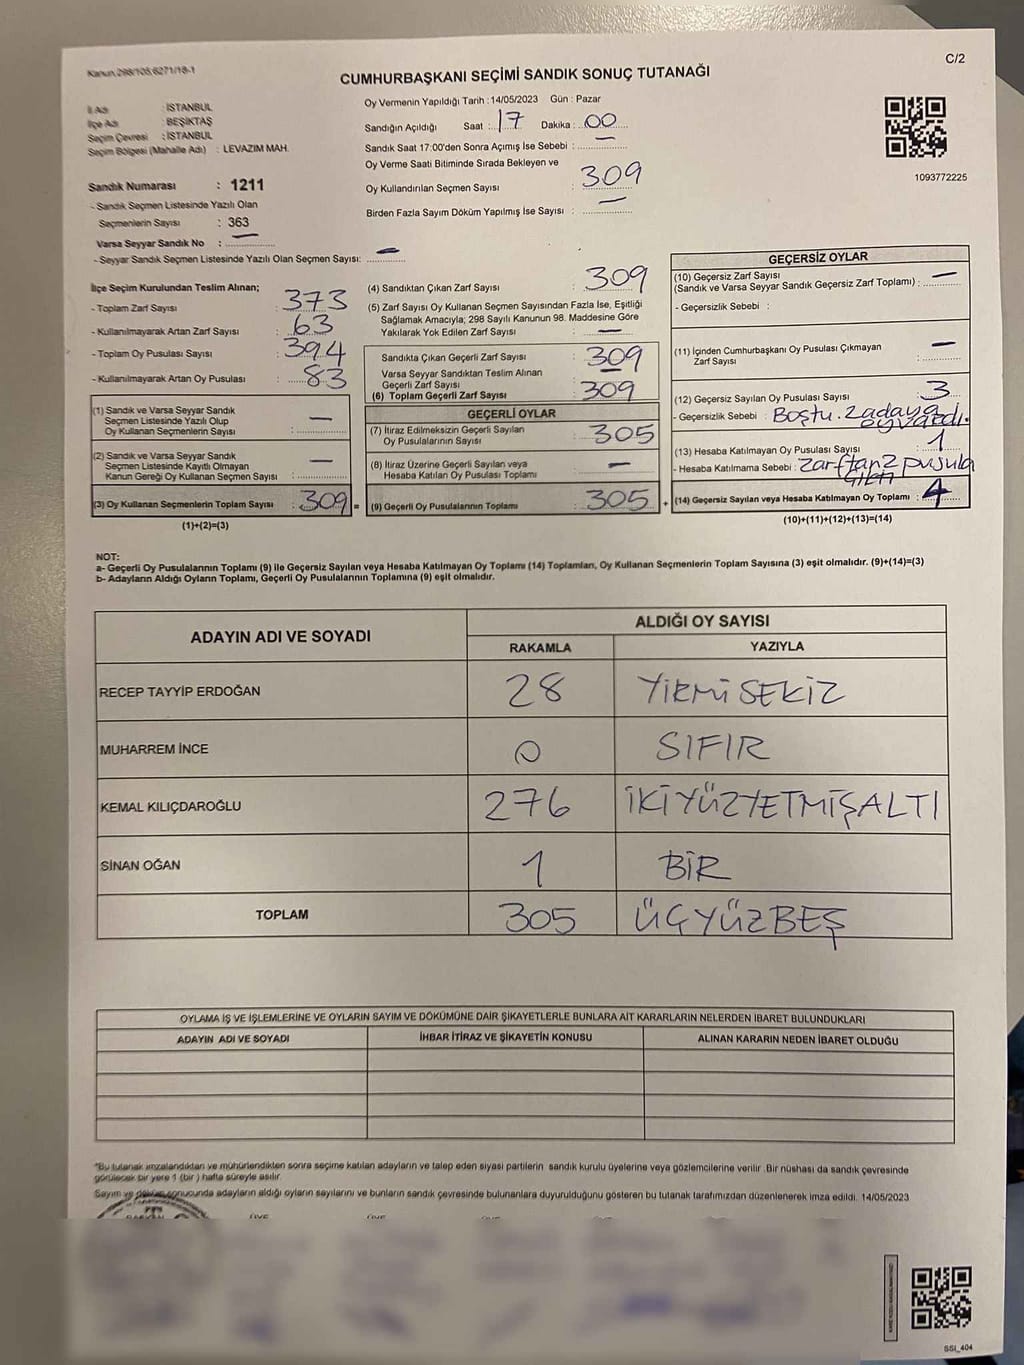 Kanun.298/105,6271/18-1
C/2
CUMHURBAŞKANI SEÇİMİ SANDIK SONUÇ TUTANAĞI
İl Adı : İSTANBUL
İlçe Adı : BEŞİKTAŞ
Seçim Çevresi : İSTANBUL
Seçim Bölgesi (Mahalle Adı) : LEVAZIM MAH.
Sandık Numarası : 1211
- Sandık Seçmen Listesinde Yazılı Olan
Seçmenlerin Sayısı : 363
Varsa Seyyar Sandık No : —
- Seyyar Sandık Seçmen Listesinde Yazılı Olan Seçmen Sayısı: —
Oy Vermenin Yapıldığı Tarih :14/05/2023 Gün : Pazar
Sandığın Açıldığı Saat : 17 Dakika : 00
Sandık Saat 17:00'den Sonra Açımış İse Sebebi : —
Oy Verme Saati Bitiminde Sırada Bekleyen ve
Oy Kullandırılan Seçmen Sayısı : 309
Birden Fazla Sayım Döküm Yapılmış İse Sayısı : —
1093772225
İlçe Seçim Kurulundan Teslim Alınan;
- Toplam Zarf Sayısı : 373
- Kullanılmayarak Artan Zarf Sayısı : 63
- Toplam Oy Pusulası Sayısı : 394
- Kullanılmayarak Artan Oy Pusulası : 83
(1) Sandık ve Varsa Seyyar Sandık
Seçmen Listesinde Yazılı Olup
Oy Kullanan Seçmenlerin Sayısı : —
(2) Sandık ve Varsa Seyyar Sandık
Seçmen Listesinde Kayıtlı Olmayan
Kanun Gereği Oy Kullanan Seçmen Sayısı : —
(3) Oy Kullanan Seçmenlerin Toplam Sayısı : 309 =
(1)+(2)=(3)
(4) Sandıktan Çıkan Zarf Sayısı : 309
(5) Zarf Sayısı Oy Kullanan Seçmen Sayısından Fazla İse, Eşitliği
Sağlamak Amacıyla; 298 Sayılı Kanunun 98. Maddesine Göre
Yakılarak Yok Edilen Zarf Sayısı : —
Sandıkta Çıkan Geçerli Zarf Sayısı : 309
Varsa Seyyar Sandıktan Teslim Alınan
Geçerli Zarf Sayısı : —
(6) Toplam Geçerli Zarf Sayısı : 309
GEÇERLİ OYLAR
(7) İtiraz Edilmeksizin Geçerli Sayılan
Oy Pusulalarının Sayısı : 305
(8) İtiraz Üzerine Geçerli Sayılan veya
Hesaba Katılan Oy Pusulası Toplamı : —
(9) Geçerli Oy Pusulalarının Toplamı : 305 +
GEÇERSİZ OYLAR
(10) Geçersiz Zarf Sayısı
(Sandık ve Varsa Seyyar Sandık Geçersiz Zarf Toplamı) : —
- Geçersizlik Sebebi :
(11) İçinden Cumhurbaşkanı Oy Pusulası Çıkmayan
Zarf Sayısı : —
(12) Geçersiz Sayılan Oy Pusulası Sayısı : 3
- Geçersizlik Sebebi : Boştu. 2 adaya
oy vardı.
(13) Hesaba Katılmayan Oy Pusulası Sayısı : 1
- Hesaba Katılmama Sebebi : Zarftan 2 pusula
çıktı
(14) Geçersiz Sayılan veya Hesaba Katılmayan Oy Toplamı : 4
(10)+(11)+(12)+(13)=(14)
NOT:
a- Geçerli Oy Pusulalarının Toplamı (9) ile Geçersiz Sayılan veya Hesaba Katılmayan Oy Toplamı (14) Toplamları, Oy Kullanan Seçmenlerin Toplam Sayısına (3) eşit olmalıdır. (9)+(14)=(3)
b- Adayların Aldığı Oyların Toplamı, Geçerli Oy Pusulalarının Toplamına (9) eşit olmalıdır.
ADAYIN ADI VE SOYADI
ALDIĞI OY SAYISI
RAKAMLA YAZIYLA
RECEP TAYYİP ERDOĞAN 28 YİRMİSEKİZ
MUHARREM İNCE 0 SIFIR
KEMAL KILIÇDAROĞLU 276 İKİYÜZYETMİŞALTI
SİNAN OĞAN 1 BİR
TOPLAM 305 ÜÇYÜZBEŞ
OYLAMA İŞ VE İŞLEMLERİNE VE OYLARIN SAYIM VE DÖKÜMÜNE DAİR ŞİKAYETLERLE BUNLARA AİT KARARLARIN NELERDEN İBARET BULUNDUKLARI
ADAYIN ADI VE SOYADI İHBAR İTİRAZ VE ŞİKAYETİN KONUSU ALINAN KARARIN NEDEN İBARET OLDUĞU
*Bu tutanak imzalandıktan ve mühürlendikten sonra seçime katılan adayların ve talep eden siyasi partilerin sandık kurulu üyelerine veya gözlemcilerine verilir .Bir nüshası da sandık çevresinde
görülecek bir yere 1 (bir ) hafta süreyle asılır.
Sayım ve döküm sonucunda adayların aldığı oyların sayılarını ve bunların sandık çevresinde bulunanlara duyurulduğunu gösteren bu tutanak tarafımızdan düzenlenerek imza edildi. 14/05/2023
SSI_404